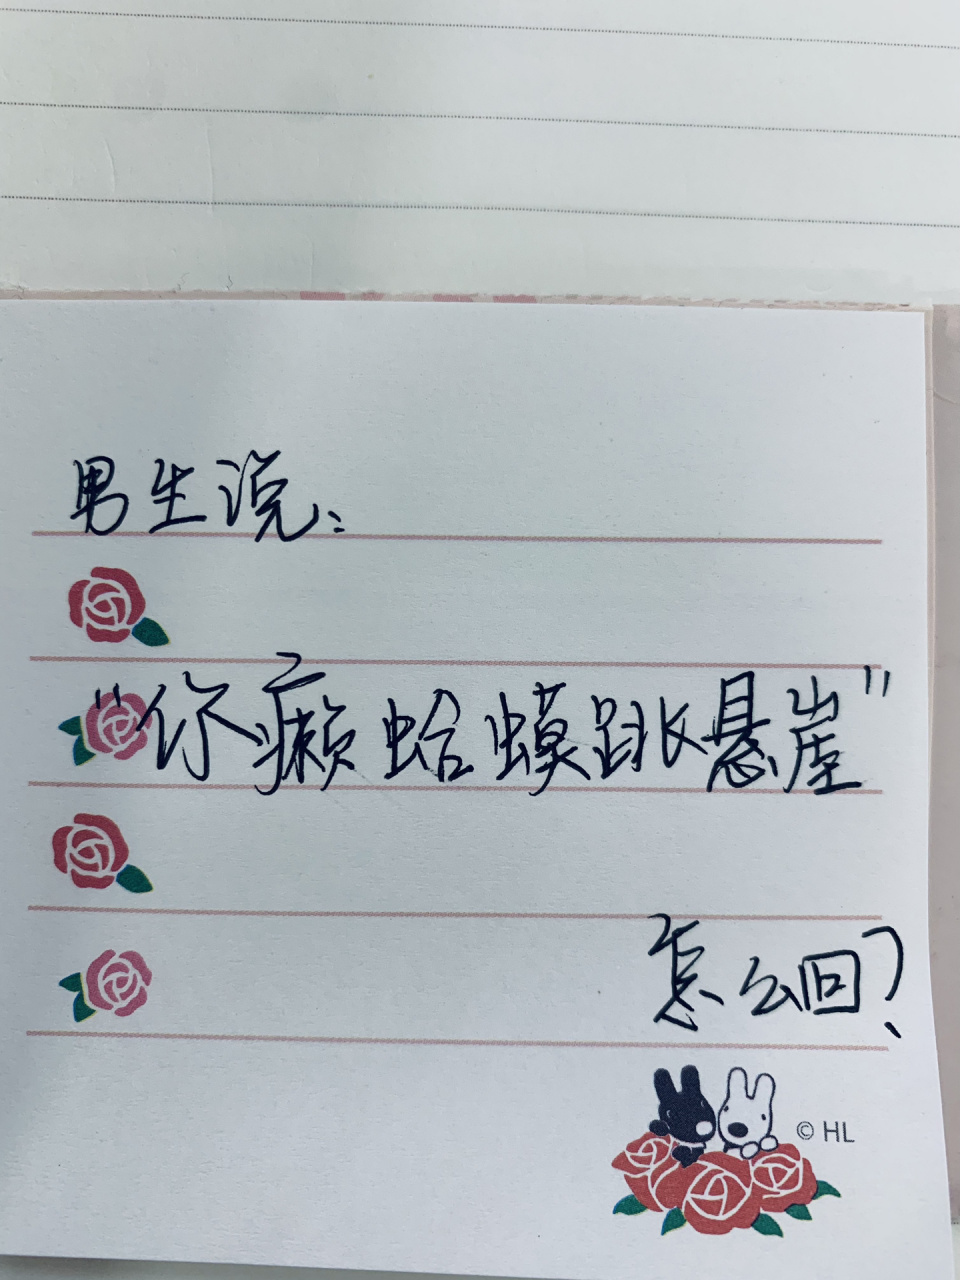 男生说:
“你癞蛤蟆跳悬崖”
怎么回?
© HL